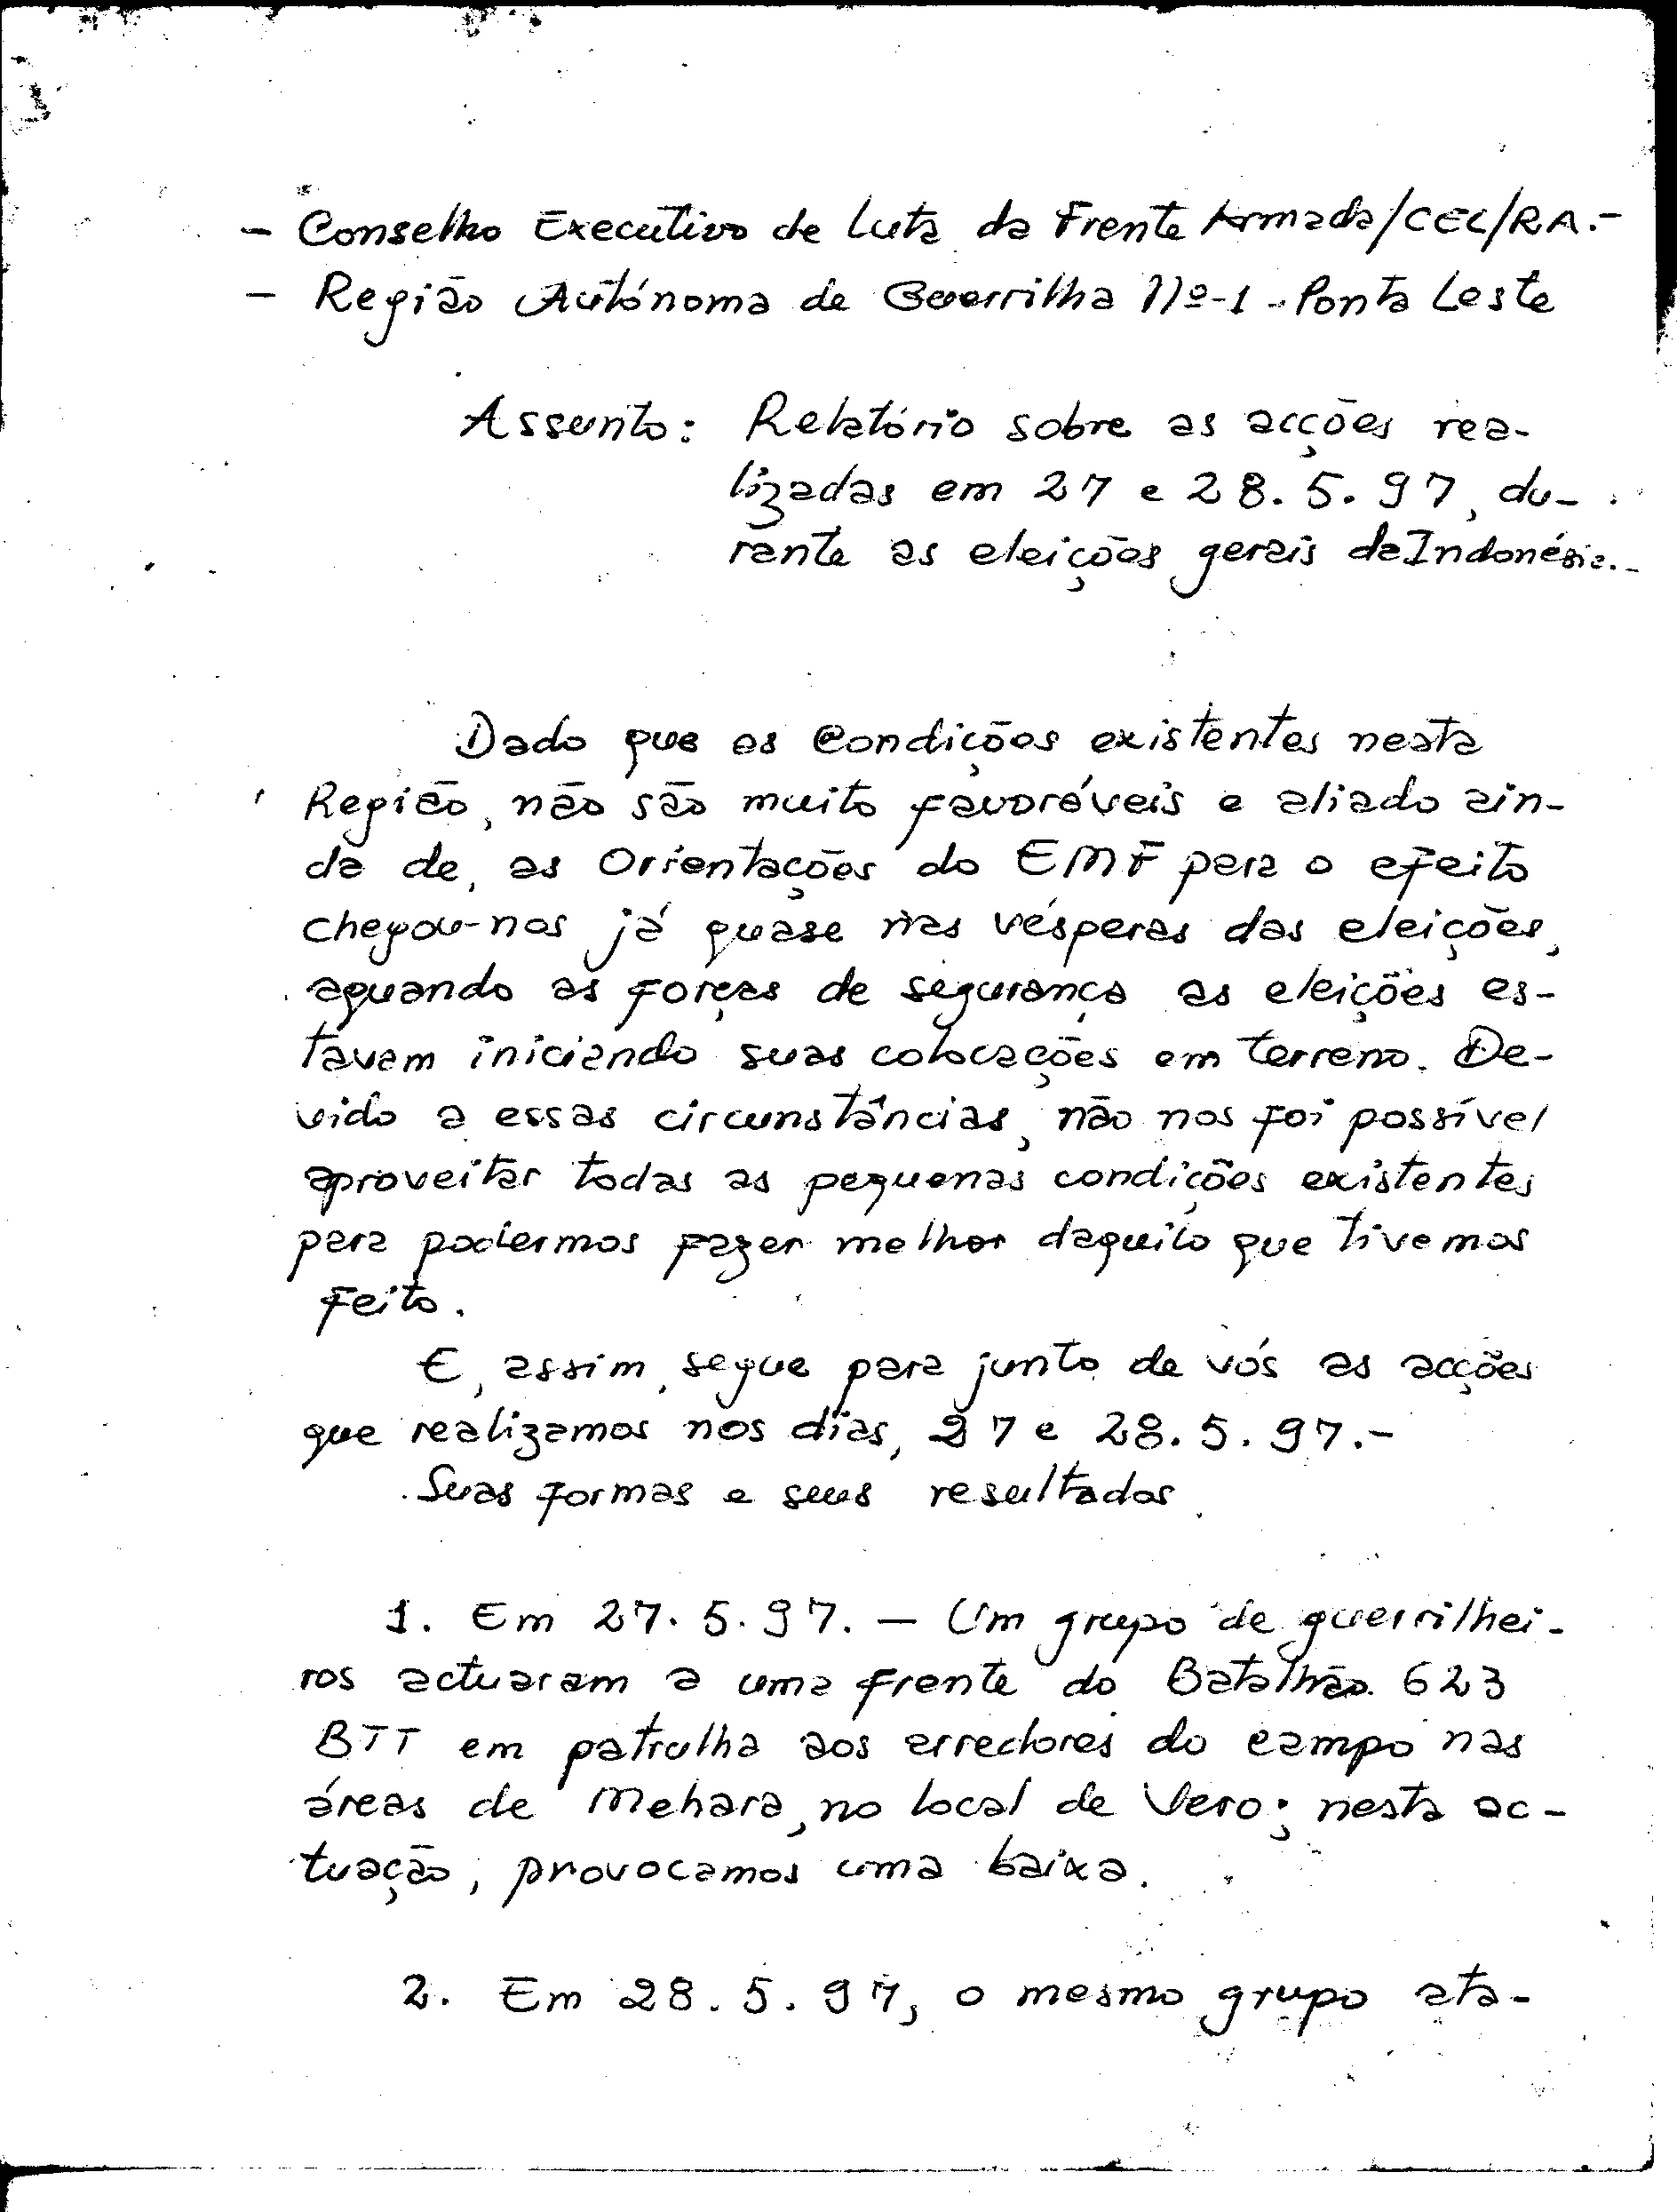 - Conselho Executivo de Luta da Frente Armada/CEL/RA.-
- Região Autónoma de Guerrilha Nº-1-Ponta Leste
Assunto: Relatório sobre as acções rea-
lizadas em 27 e 28.5.97, du-
rante as eleições gerais da Indonésia.-
Dado que as Condições existentes nesta
Região, não são muito favoráveis e aliado ain-
da de, as Orientações do EMF para o efeito
chegou-nos já quase nas vésperas das eleições,
aquando as forças de segurança as eleições es-
tavam iniciando suas colocações em terreno. De-
vido a essas circunstâncias, não nos foi possível
aproveitar todas as pequenas condições existentes
para podermos fazer melhor daquilo que tivemos
feito.
E, assim, segue para junto de vós as acções
que realizamos nos dias, 27 e 28.5.97.-
Suas formas e seus resultados.
1. Em 27.5.97. — Um grupo de guerrilhei-
ros actuaram a uma frente do Batalhão 623
BTT em patrulha aos arredores do campo nas
áreas de Mehara, no local de Vero; nesta ac-
tuação, provocamos uma baixa.
2. Em 28.5.97, o mesmo grupo ata-